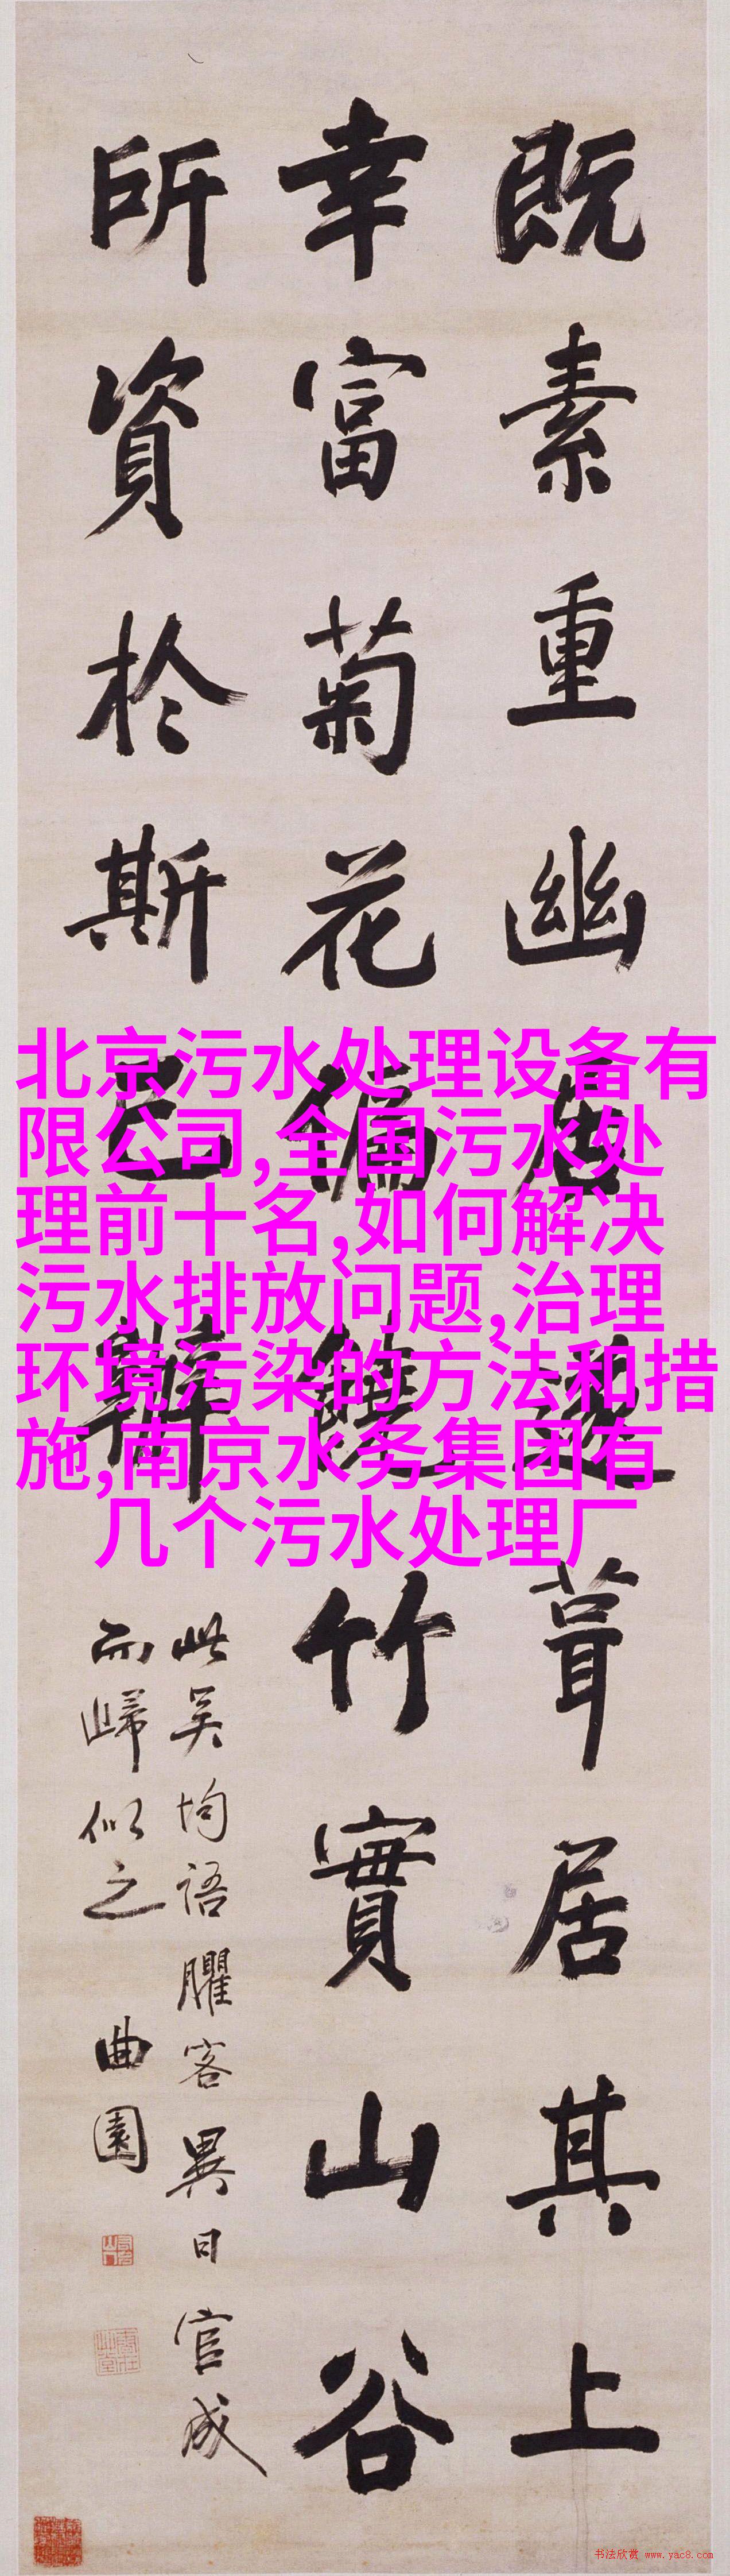 既素重幽居遂葺居其上
幸富菊花偏饒竹實山谷
所資於斯已辦
此吴均語臞客異日官成
而歸似之
曲園
北京污水处理设备有
限公司,全国污水处
理前十名,如何解决
污水排放问题,治理
环境污染的方法和措
施,南京水务集团有
几个污水处理厂
书法欣赏 www.yac8.com